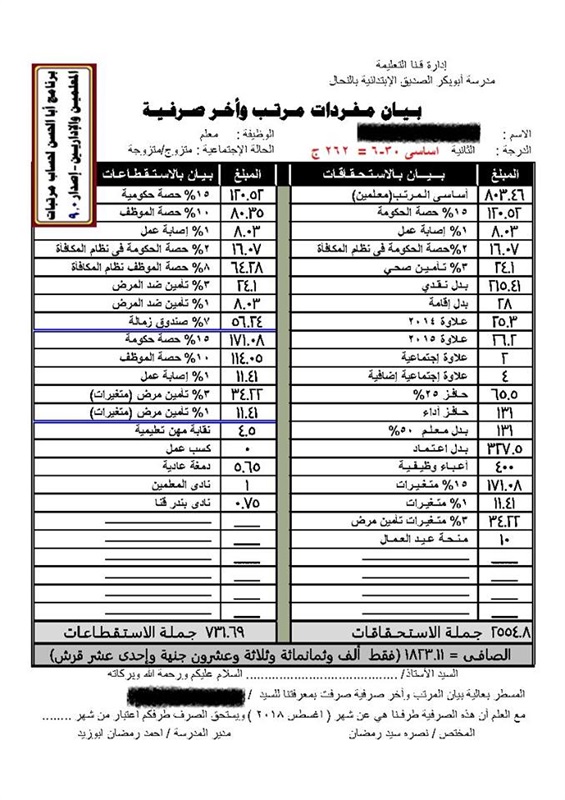 إدارة قنا التعليمة
مدرسة أبوبكر الصديق الإبتدائية بالنحال
برنامج أبا الحسن لحساب مرتبات
المعلمين والإداريين - إصدار ٩.٠
بيان مفردات مرتب وأخر صرفية
الاسم : الوظيفة : معلم
الدرجة : الثانية اساسى ٣٠-٦ = ٢٦٢ ج الحالة الإجتماعية : متزوج/متزوجة
المبلغ بيـــان بالاستحقاقات المبلغ بيـان بالاستقطاعات
٨٠٣.٤٦ أساسى المرتب(معلمين) ١٢٠.٥٢ ١٥% حصة حكومية
١٢٠.٥٢ ١٥% حصة الحكومة ٨٠.٣٥ ١٠% حصة الموظف
٨.٠٣ ١% إصابة عمل ٨.٠٣ ١% إصابة عمل
١٦.٠٧ ٢%حصة الحكومة فى نظام المكافأة ١٦.٠٧ ٢% حصة الحكومة فى نظام المكافأة
٢٤.١ ٣% تأمين صحي ٦٤.٢٨ ٨% حصة الموظف نظام المكافأة
٢١٥.٤١ بدل نقدي ٢٤.١ ٣% تأمين ضد المرض
٢٨ بدل إقامة ٨.٠٣ ١% تأمين ضد المرض
٢٥.٣ علاوة ٢٠١٤ ٥٦.٢٤ ٧% صندوق زمالة
٢٦.٢ علاوة ٢٠١٥ ١٧١.٠٨ ١٥% حصة حكومة
٢ علاوة إجتماعية ١١٤.٠٥ ١٠% حصة الموظف
٤ علاوة إجتماعية إضافية ١١.٤١ ١% إصابة عمل
٦٥.٥ حافز ٢٥% ٣٤.٢٢ ٣% تأمين مرض (متغيرات)
١٣١ حافز أداء ١١.٤١ ١% تأمين مرض (متغيرات)
١٣١ بدل معلم ٥٠% ٤.٥ نقابة مهن تعليمية
٣٢٧.٥ بدل اعتماد ٠ كسب عمل
٤٠٠ أعباء وظيفية ٥.٦٥ دمغة عادية
١٧١.٠٨ ١٥% متغيرات ١ نادى المعلمين
١١.٤١ ١% متغيرات ٠.٧٥ نادى بندر قنا
٣٤.٢٢ ٣% متغيرات تأمين مرض
١٠ منحة عيد العمال
٢٥٥٤.٨ جملة الاستحقاقات ٧٣١.٦٩ جملة الاستقطاعات
الصافى = ١٨٢٣.١١ (فقط ألف وثمانمائة وثلاثة وعشرون جنهة وإحدى عشر قرش)
السيد الأستاذ/ ........................ السلام عليكم ورحمة الله وبركاته
المسطر بعالية بيان المرتب وأخر صرفية صرفت بمعرفتنا للسيد /
مع العلم أن هذه الصرفية طرفنا هي عن شهر ( اغسطس ٢٠١٨ ) ويستحق الصرف طرفكم اعتبار من شهر ........
المختص / نصره سيد رمضان مدير المدرسة / احمد رمضان ابوزيد